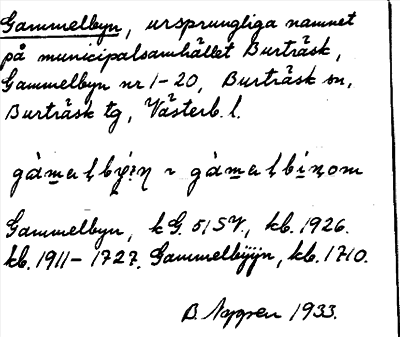 Gammelbyn, ursprungliga namnet
på municipalsamhället Burträsk,
Gammelbyn nr 1-20, Burträsk sn,
Burträsk tg, Västerb. l.
Gammelbyn, kb. 1926.
kb. 1911-1727. Gammelbÿÿn, kb. 1710.
B. 1933.